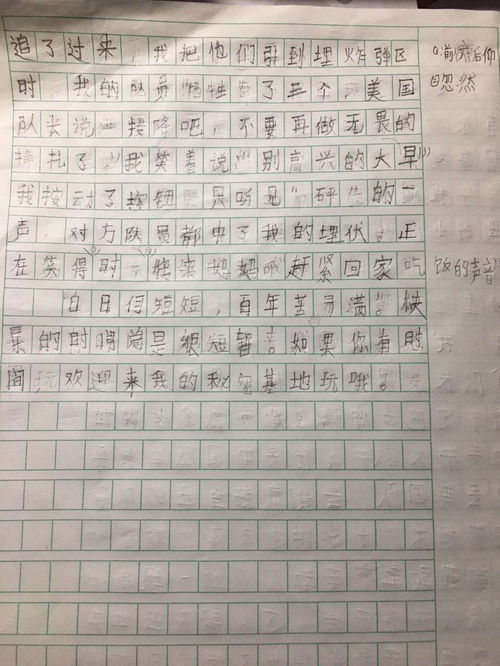 追了过来，我把他们引到埋炸弹区
时，我的队员牺牲了三个，美国
队长说：投降吧，不要再做无畏的
挣扎了。”我笑着说“别高兴的太早”
我按动了按钮，只听见“砰”的一
声，对方队员都中了我的埋伏。正
在笑得时，赶紧回家吃
饭的声音”
“白日何短短，百年苦易满”。快
的时间总是很短暂。如果你有时
间玩欢迎来我的秘密基地玩哦。
①前仰后仰
②忽然